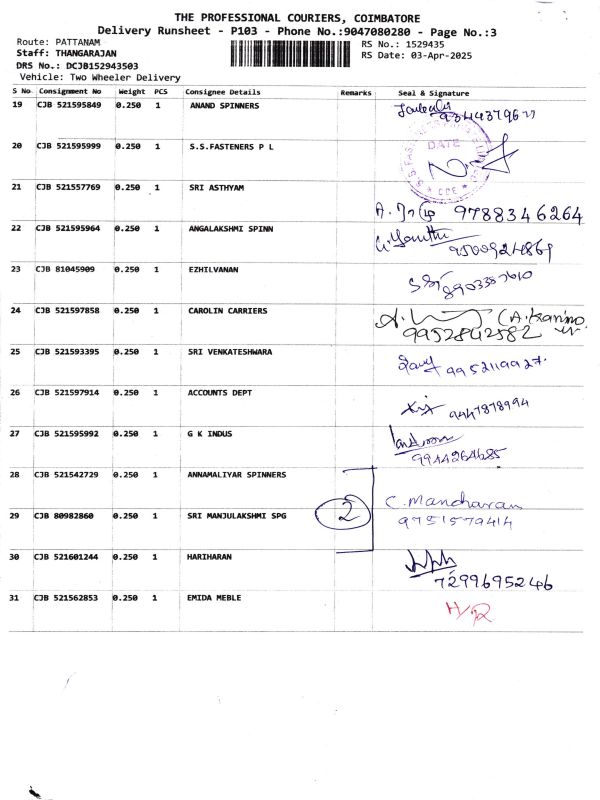 THE PROFESSIONAL COURIERS, COIMBATORE
Delivery Runsheet - P103 - Phone No.:9047080280 - Page No.:3
Route: PATTANAM
RS No.: 1529435
Staff: THANGARAJAN
RS Date: 03-Apr-2025
DRS No.: DCJB152943503
Vehicle: Two Wheeler Delivery
S No Consignment No Weight PCS Consignee Details Remarks Seal & Signature
19 CJB 521595849 0.250 1 ANAND SPINNERS
20 CJB 521595999 0.250 1 S.S.FASTENERS P L DATE
21 CJB 521557769 0.250 1 SRI ASTHYAM
9788346264
22 CJB 521595964 0.250 1 ANGALAKSHMI SPINN
9500924869
23 CJB 81045909 0.250 1 EZHILVANAN
8903387610
24 CJB 521597858 0.250 1 CAROLIN CARRIERS
9952842582
25 CJB 521593395 0.250 1 SRI VENKATESHWARA
9952119927.
26 CJB 521597914 0.250 1 ACCOUNTS DEPT
9447878994
27 CJB 521595992 0.250 1 G K INDUS
9944264685
28 CJB 521542729 0.250 1 ANNAMALIYAR SPINNERS
C. Manoharan
29 CJB 80982860 0.250 1 SRI MANJULAKSHMI SPG 2
9751579414
30 CJB 521601244 0.250 1 HARIHARAN
7299695246
31 CJB 521562853 0.250 1 EMIDA MEBLE